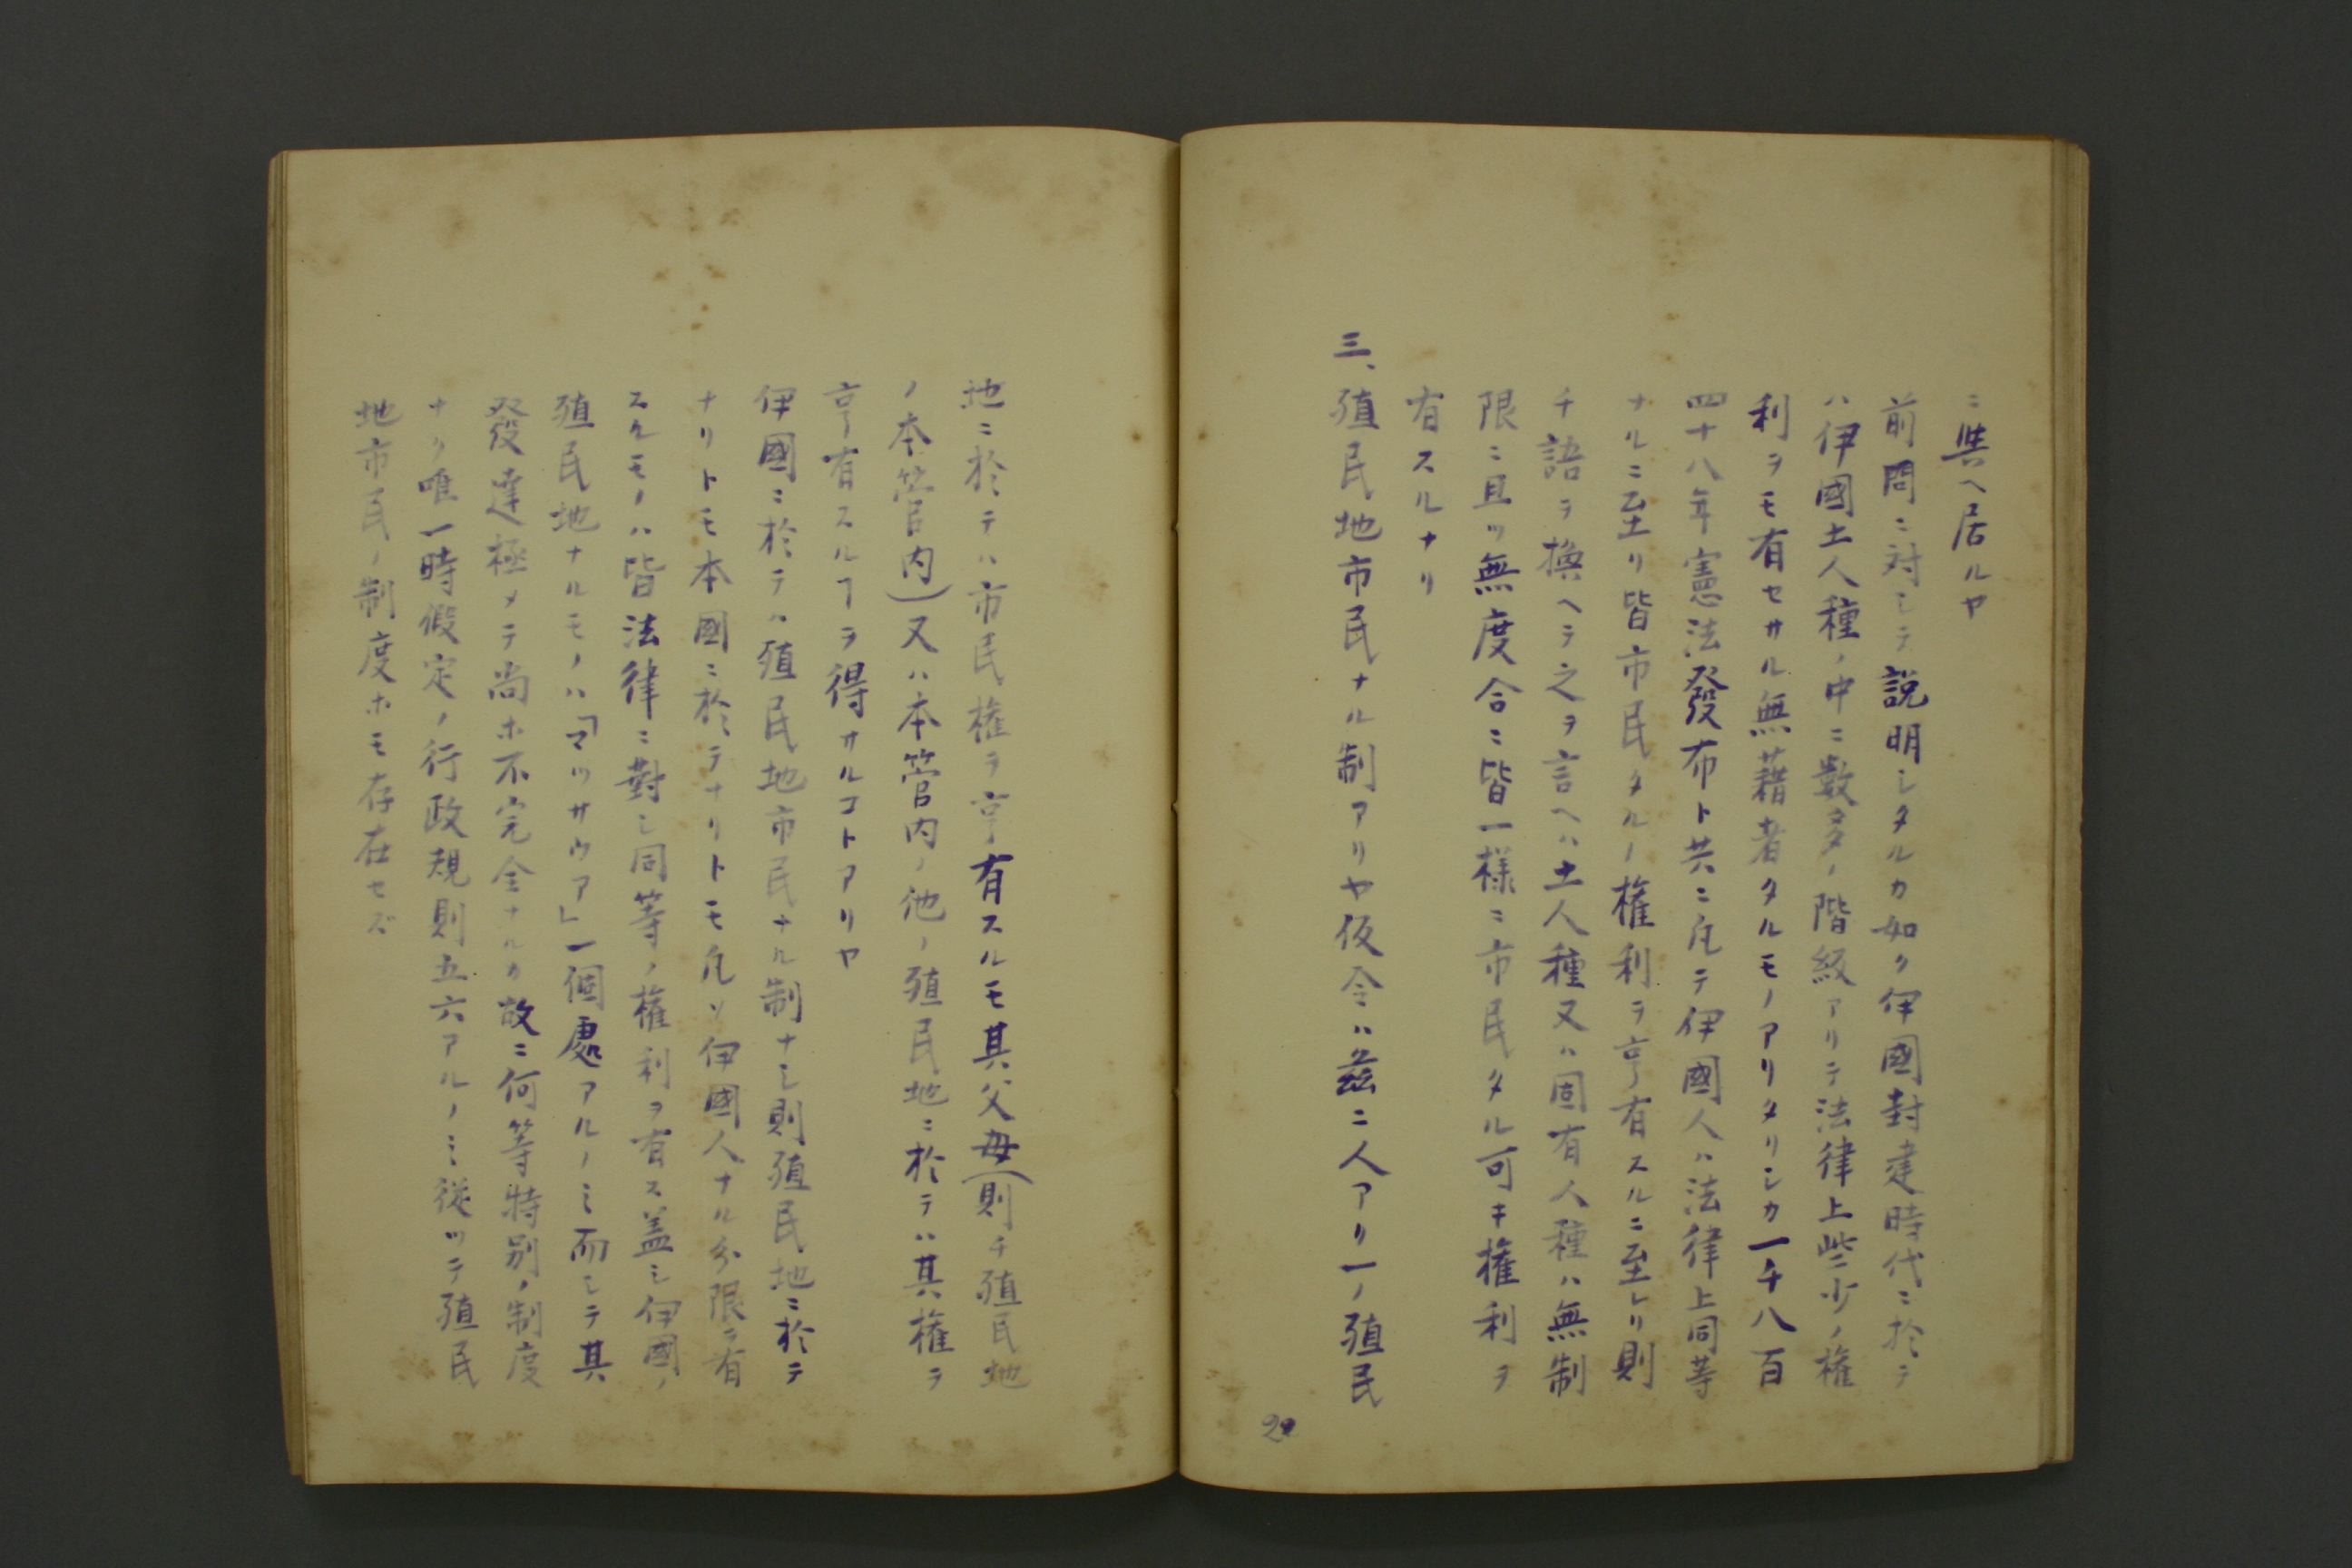 ニ與ヘ居ルヤ
前問ニ対シテ説明シタルカ如ク伊國封建時代ニ於テ
ハ伊國土人種ノ中ニ数多ノ階級アリテ法律上些少ノ権
利ヲモ有セサル無藉者タルモノアリタリシカ一千八百
四十八年憲法發布ト共ニ凡テ伊國人ハ法律上同等
ナルニ至リ皆市民タルノ権利ヲ亨有スルニ至レリ則
チ語ヲ換ヘテ之ヲ言ヘハ土人種又ハ固有人種ハ無制
限ニ且ツ無度合ニ皆一様ニ市民タル可キ権利ヲ
有スルナリ
三、殖民地市民ナル制アリヤ仮令ハ茲ニ人アリ一ノ殖民
29
地ニ於テハ市民権ヲ亨有スルモ其父母(則チ殖民地
ノ本管内)又ハ本管内ノ他ノ殖民地ニ於テハ其権ヲ
亨有スルヿヲ得サルコトアリヤ
伊國ニ於テハ殖民地市民ナル制ナシ則殖民地ニ於テ
ナリトモ本國ニ於テナリトモ凡ソ伊國人ナル分限ヲ有
スルモノハ皆法律ニ對シ同等ノ権利ヲ有ス盖シ伊國ノ
殖民地ナルモノハ「マツサウア」一個處アルノミ而シテ其
發達極メテ尚ホ不完全ナルカ故ニ何等特别ノ制度
ナク唯一時假定ノ行政規則五六アルノミ従ツテ殖民
地市民ノ制度ホモ存在セズ